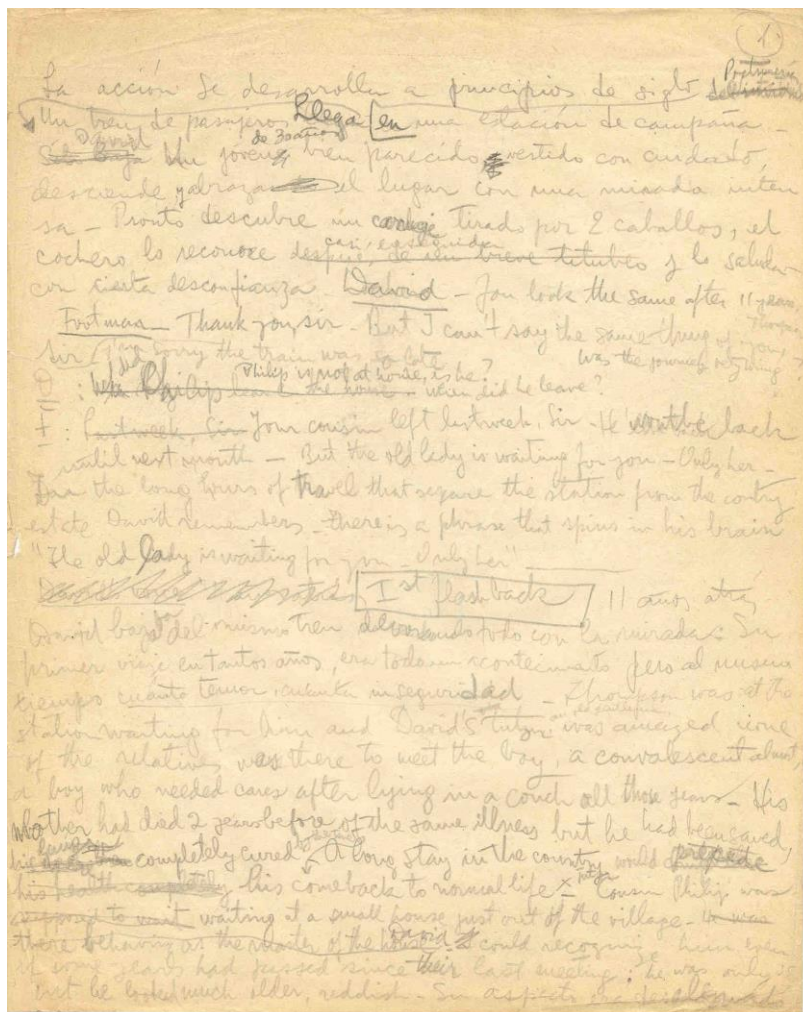 1
La acción se desarrolla a principios de siglo
Un tren de pasajeros llega en una estación de campaña -
David de 30 años
Un joven bien parecido vestido con cuidado,
desciende y abraza el lugar con una mirada inten
sa - Pronto descubre un tirado por 2 caballos, el
casi enseguida
cochero lo reconoce después de un breve titubeo y lo saluda
con cierta desconfianza. David - You look the same after 11 years,
Footman - Thank you, sir - But I can't say the same thing of you,
Sir sorry the train was so late was the journey
Philip is not at home, is he?
D: did Philip leave the house - when did he leave?
F: Last week, Sir Your cousin left last week, Sir - He won't be back
until next month - But the old lady is waiting for you - Only her -
the long hours of travel that the station from the
estate David remembers - there is a phrase that spins in his brain
"The old lady is waiting for you - Only her"
1st flashback 11 años atrás
David del mismo tren todo con la mirada: Su
primer viaje en tantos años, era todo un acontecimiento pero al mismo
tiempo cuánto temor, cuánta inseguridad - Thompson was at the
station waiting for him and David's was amazed none
of the relatives was there to meet the boy, a convalescent almost,
a boy who needed cares after lying in a couch all those years - His
mother had died 2 years before of the same illness but he had been saved,
completely cured - A long stay in the country would
his health completely his comeback to normal life - Cousin Philip was
supposed to wait waiting at a small house just out of the village - He was
there behaving as the master of the house David could recognize him even
if some years had passed since their last meeting: he was only
but he looked much older, reddish - Su aspecto era